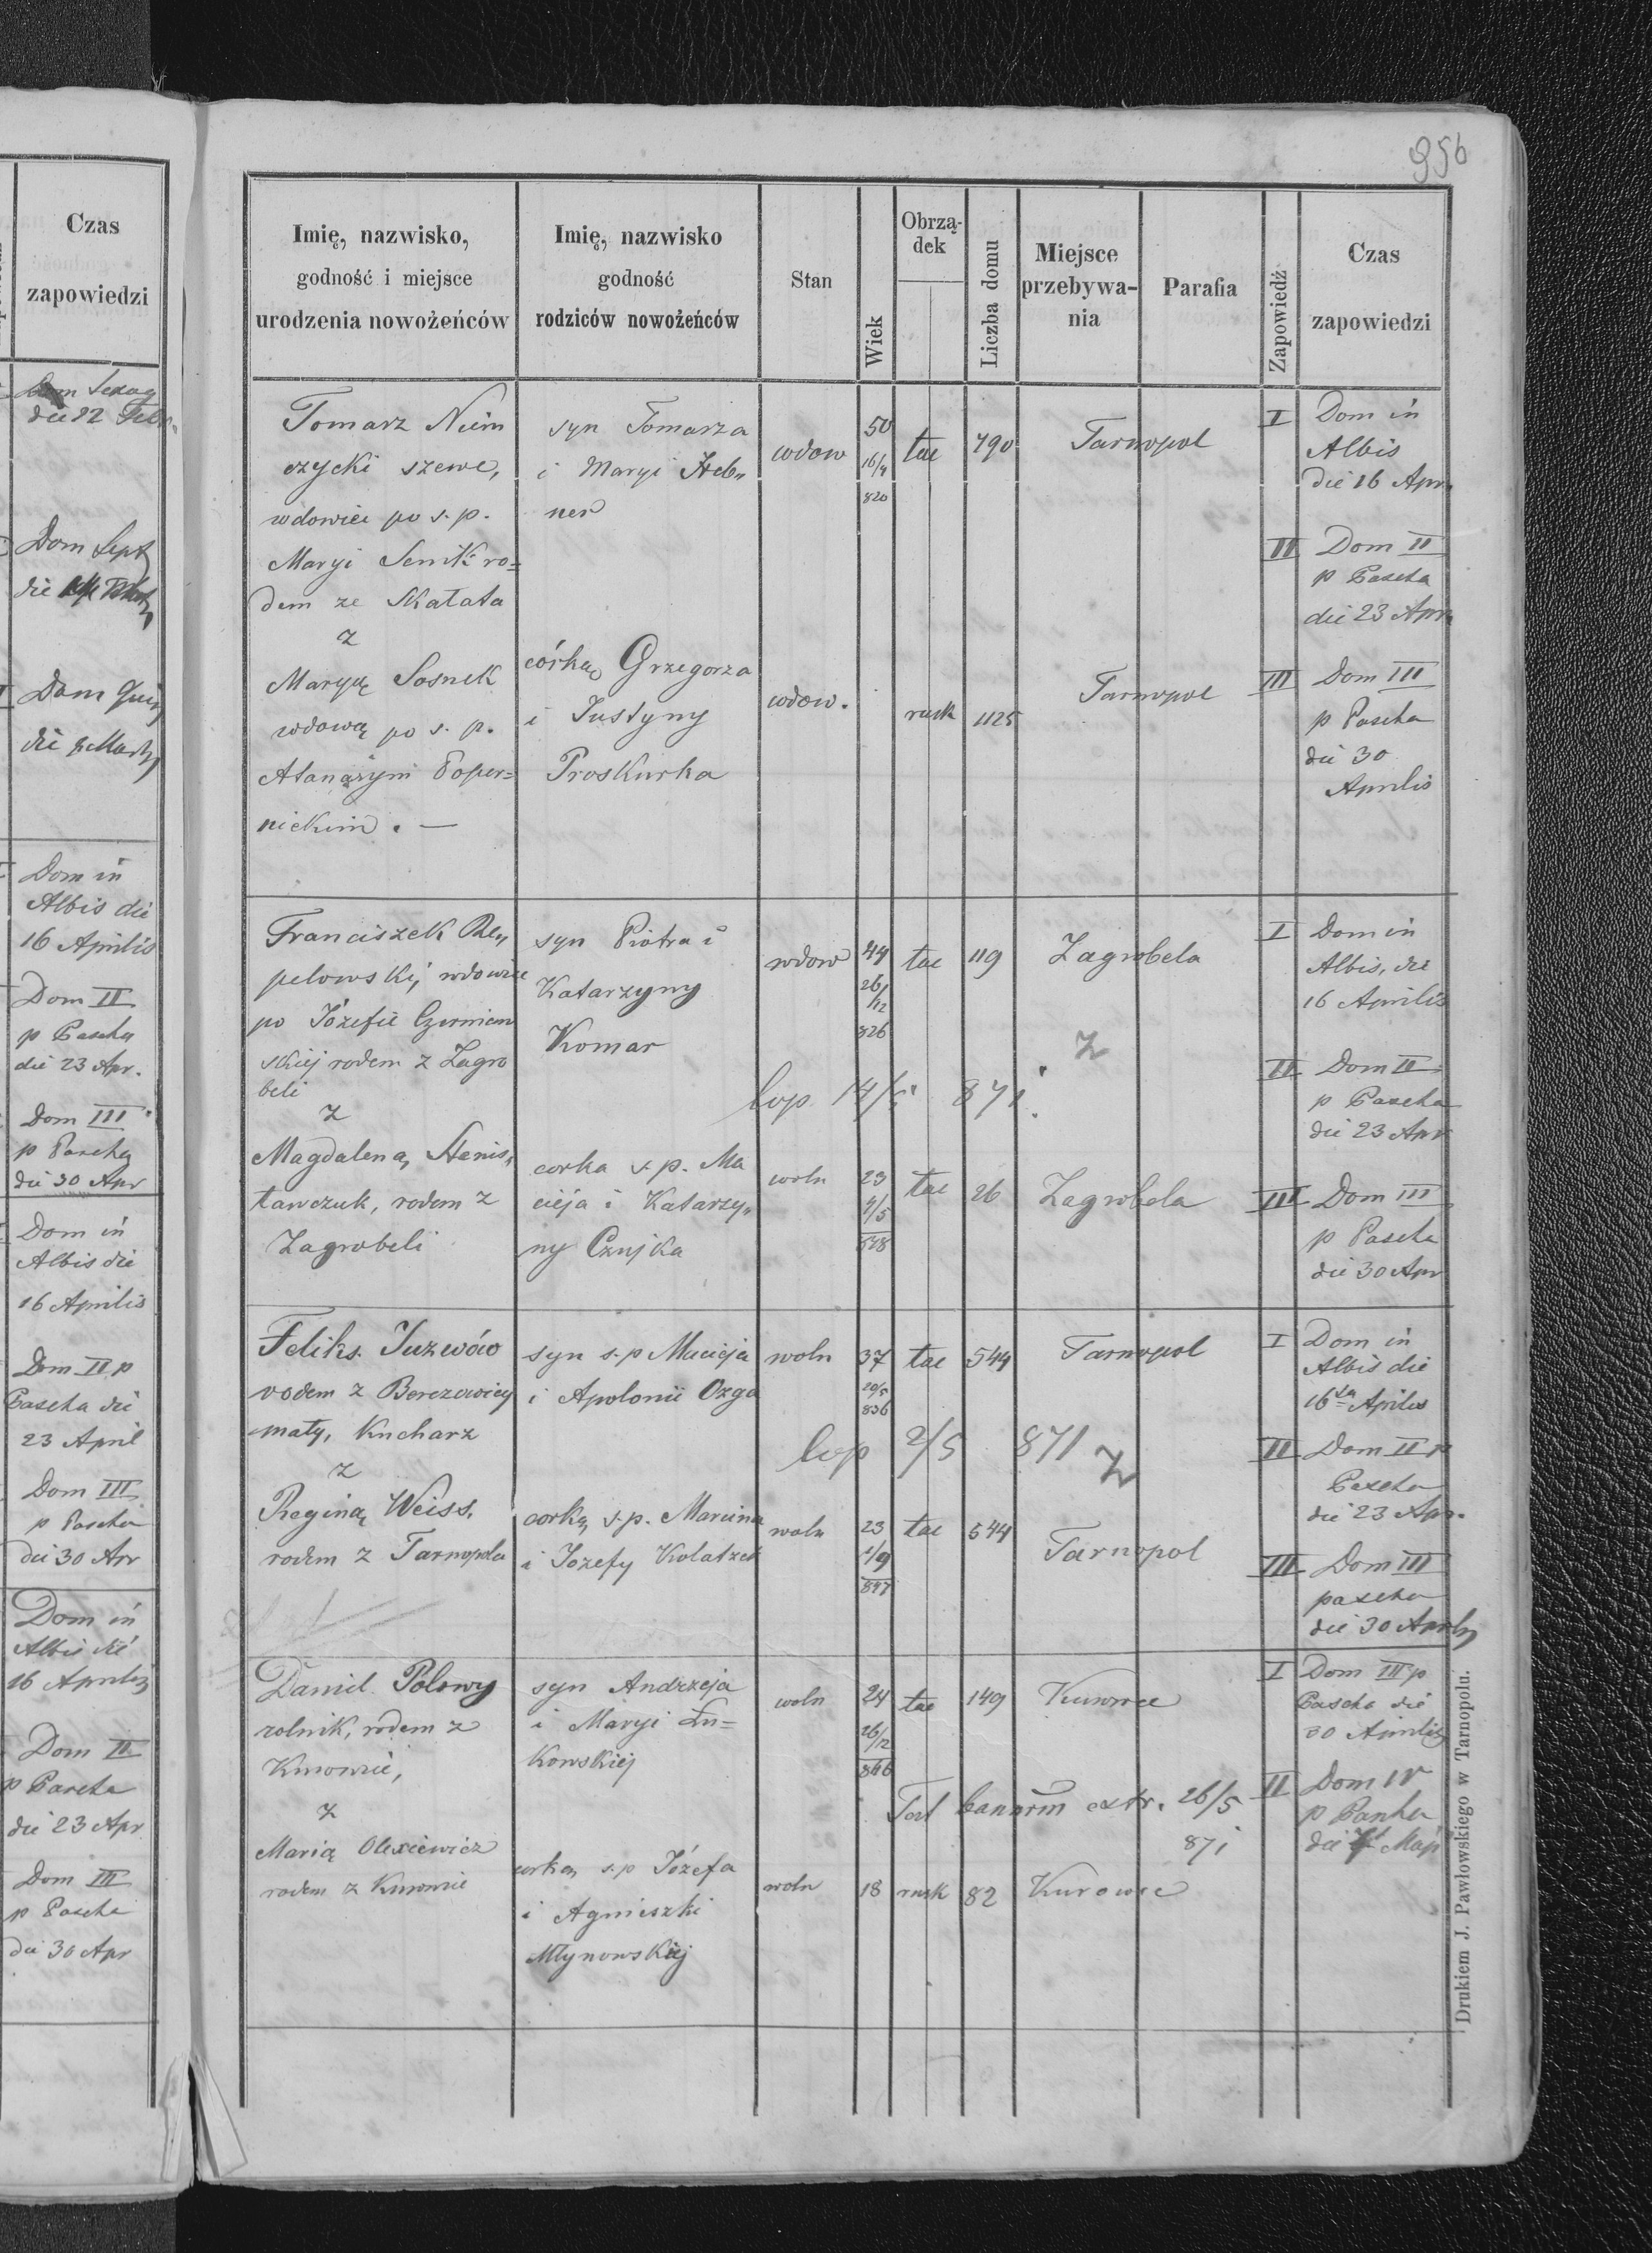 Czas
zapowiedzi
die 22 Febr.
Dom Sept
die
Dom Quin
die Marty
Dom in
Albis die
16 Aprilis
Dom II
p Pascha
die 23 Apr.
Dom III
p Pascha
die 30 Apr
Dom in
Albis die
16 Aprilis
Dom II p
Pascha die
23 April
Dom III
p Pascha
die 30 Apr
Dom in
Albis die
16 Aprilis
Dom II
p Pascha
die 23 Apr
Dom III
p Pascha
die 30 Apr
956
Imię, nazwisko,
godność i miejsce
urodzenia nowożeńców
Imię, nazwisko
godność
rodziców nowożeńców
Stan
Wiek
Obrzą-
dek
Liczba domu
Miejsce
przebywa-
nia
Parafia
Zapowiedź
Czas
zapowiedzi
Tomarz Niem
czycki szewc,
wdowiec po s. p.
Maryi Semik ro=
dem ze Skałata
z
Maryą Sosnek
wdową po s. p.
Atanazym Poper=
nickim. —
syn Tomarza
i Maryi Heb„
ner
córką Grzegorza
i Justyny
Proskurka
wdow
50
16/4
820
łac
790
Tarnopol
wdow.
rusk
1125
Tarnopol
I
Dom in
Albis
die 16 Apr.
II
Dom II
p Pascha
die 23 Apr.
III
Dom III
p Pascha
die 30
Aprilis
Franciszek Re„
pelowski, wdowiec
po Józefie Czerniaw
skiej rodem z Zagro
beli
z
Magdaleną Stenis„
ławczuk, rodem z
Zagrobeli
syn Piotra i
Katarzyny
Komar
corka s. p. Ma
cieja i Katarzy„
ny Czujka
wdow
44
26/
/12
826
łac
119
Zagrobela
z
cop. 14/5 871.
woln
23
4/5
848
łac
26
Zagrobela
I
Dom in
Albis, die
16 Aprilis
II
Dom II
p Pascha
die 23 Apr
III
Dom III
p Pascha
die 30 Apr
Feliks. Juzwów
rodem z Berezowicy
mały, Kucharz
z
Reginą Weiss,
rodem z Tarnopola
syn s.p Macieja
i Apolonii Ozga
corką s.p. Marcina
i Jozefy Kolatzek
woln
37
20/5
836
łac
544
Tarnopol
cop 2/5 871
z
woln
23
1/9
847
łac
544
Tarnopol
I
Dom in
Albis die
16 Aprilis
II
Dom II p
Pascha
die 23 Apr.
III
Dom III
pascha
die 30 Aprilis
Daniel Polowy
rolnik, rodem z
z
Marią Olexiewicz
rodem z
syn Andrzeja
i Maryi Łu=
kowskiej
corką s.p Józefa
i Agnieszki
Młynowskiej
woln
24
26/12
846
łac
149
Kurowce
extr. 26/5
871
woln
18
rusk
82
Kurowce
I
Dom III p
Pascha die
30 Aprilis
II
Dom IV
p Pascha
die 7 Maji
Drukiem J. Pawłowskiego w Tarnopolu.